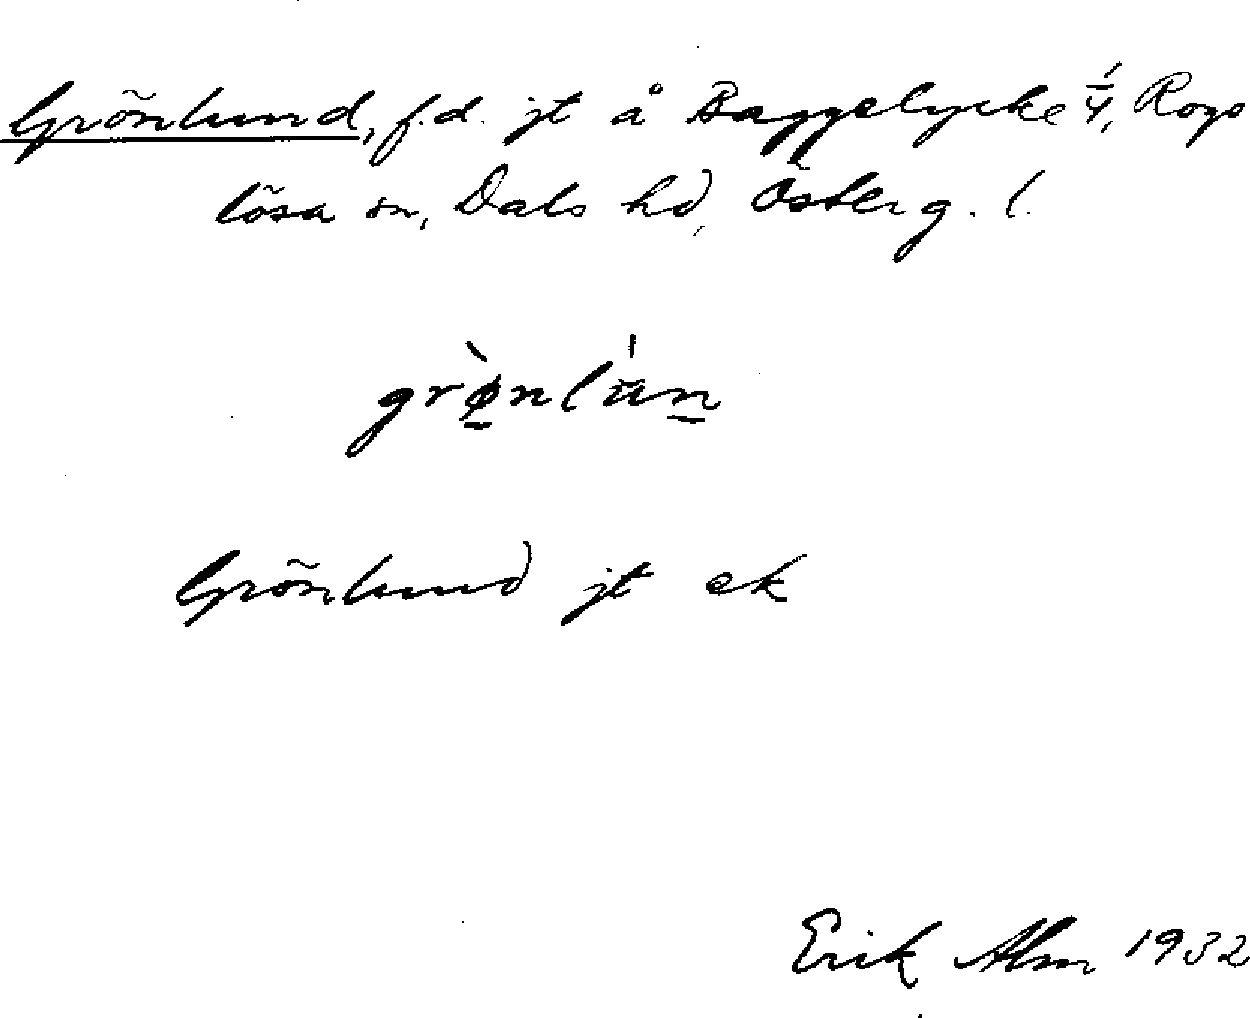 Grönlund, f.d. jt å Baggelycke 1/4, Rogs
lösa sn, Dals hd, Österg. l.
grø̀nlun
Grönlund jt ek
Erik Alm 1932